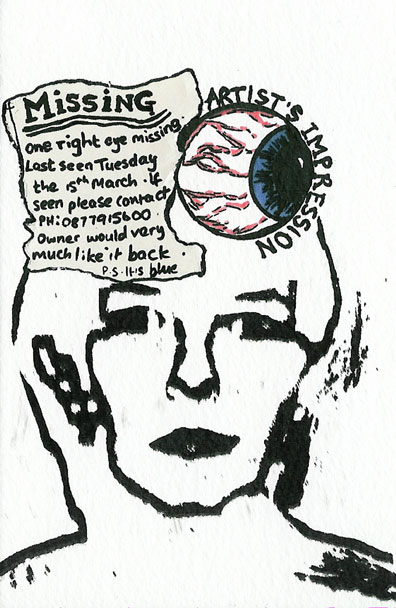 Missing
one right eye missing.
Last seen Tuesday
the 15th March. If
seen please contact
PH: 0877915600.
Owner would very
much like it back.
P.S. It is blue
ARTIST'S IMPRESSION